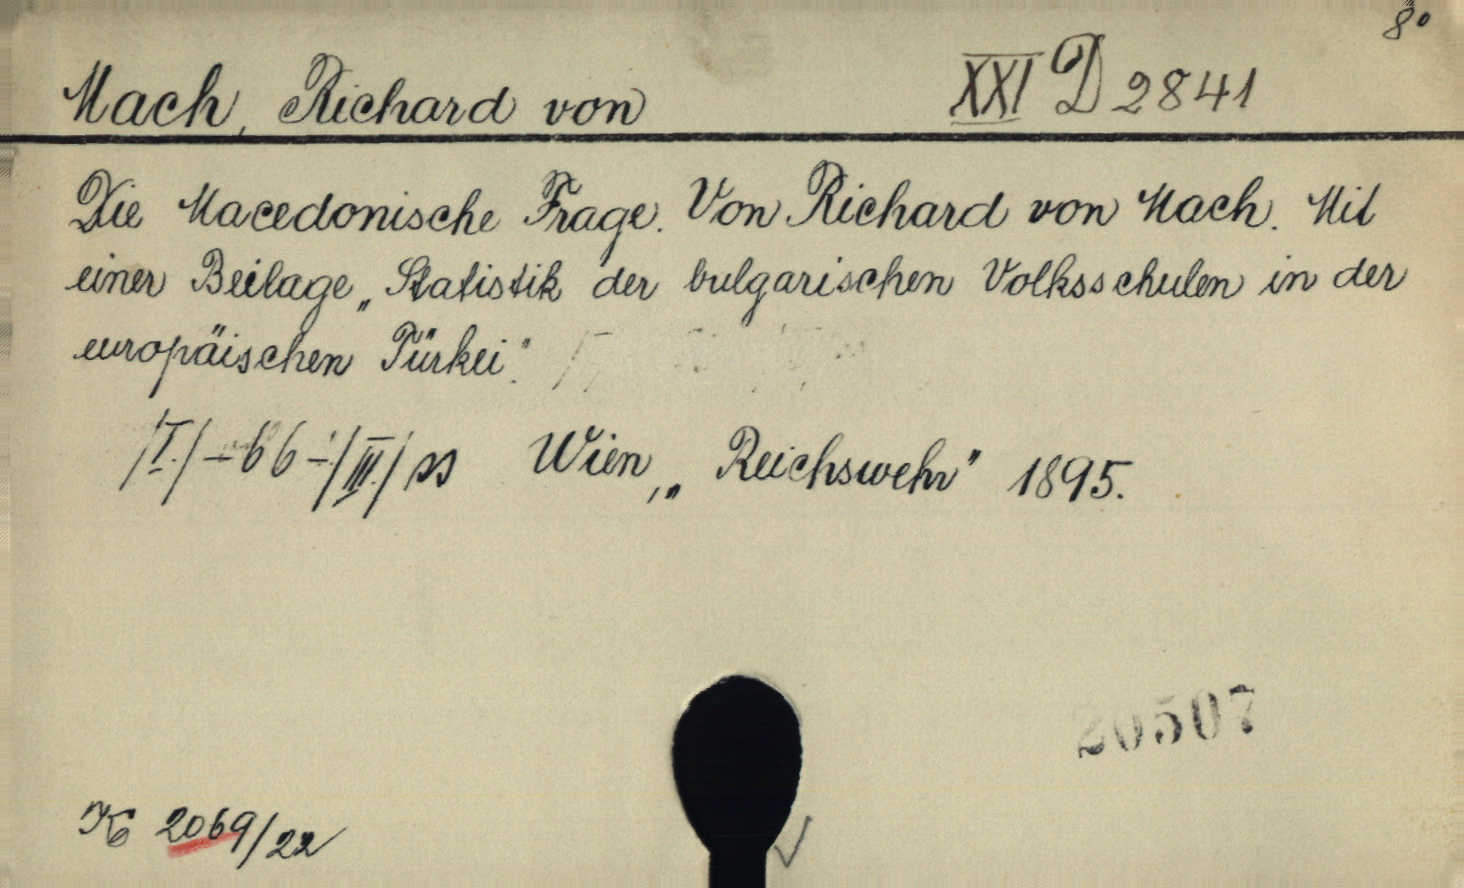 8°
Mach, Richard von XXI D 2841
Die Macedonische Frage. Von Richard von Mach. Mit
einer Beilage „Statistik der bulgarischen Volksschulen in der
europäischen Türkei".
/I./ - 66 - /III./ ss Wien, „Reichswehr" 1895.
20507
K 2069/22